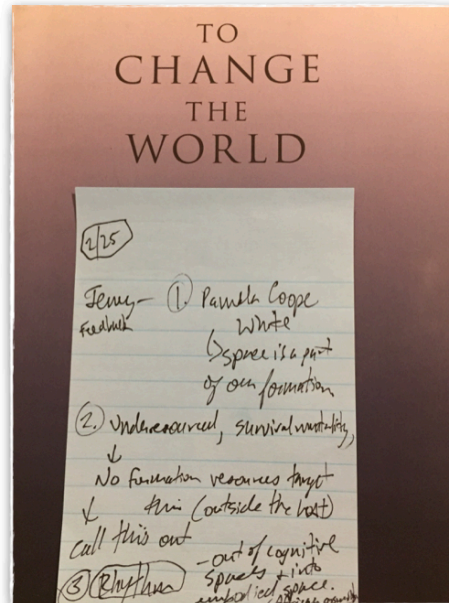 TO
CHANGE
THE
WORLD
2/25
Jenny- 1. Pamela Coope
Feedback White
↳ space is a part
of our formation
2. Underresourced, survival mentality,
↓
No formation resources target
↓ this (outside the box)
Call this out
-out of cognitive
3 Rhythm spaces + into
embodied space.